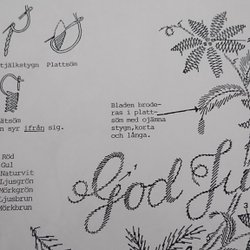 tjälkstygn Plattsöm
ätsöm
n syr ifrån sig.
Bladen brode-
ras i platt-
söm med ojämna
stygn, korta
och långa.
Röd
Gul
Naturvit
Ljusgrön
Mörkgrön
Ljusbrun
Mörkbrun
God Ju